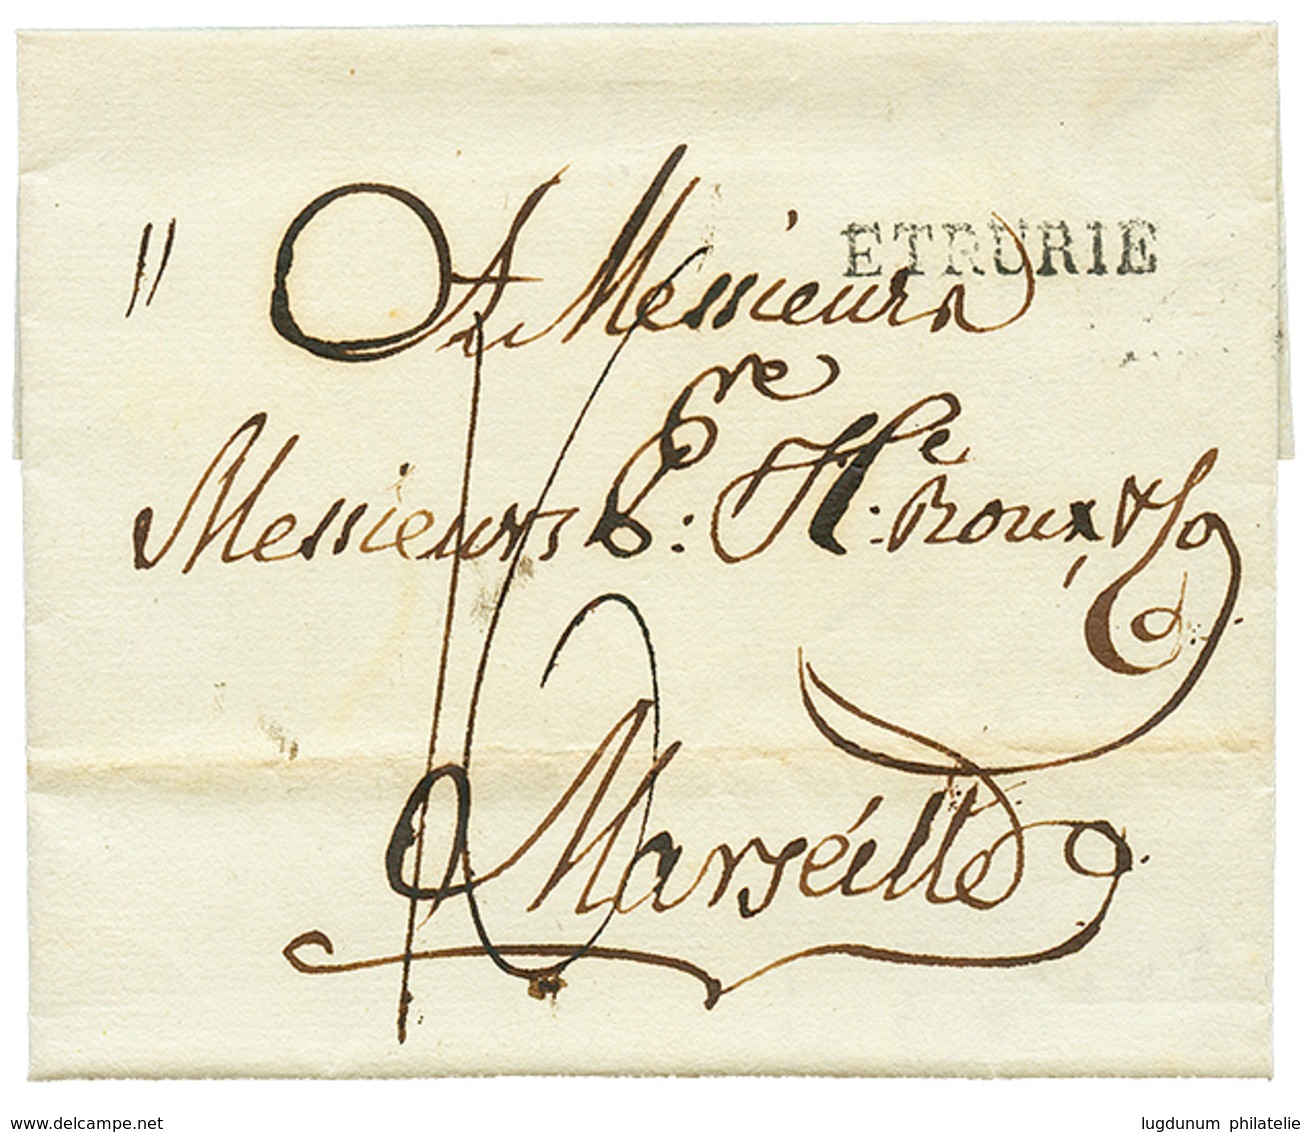 ETRURIE
"
A Messieurs
Messieurs P.re H.e Roux & Co
Marséille
16
www.delcampe.net
lugdunum philatelie